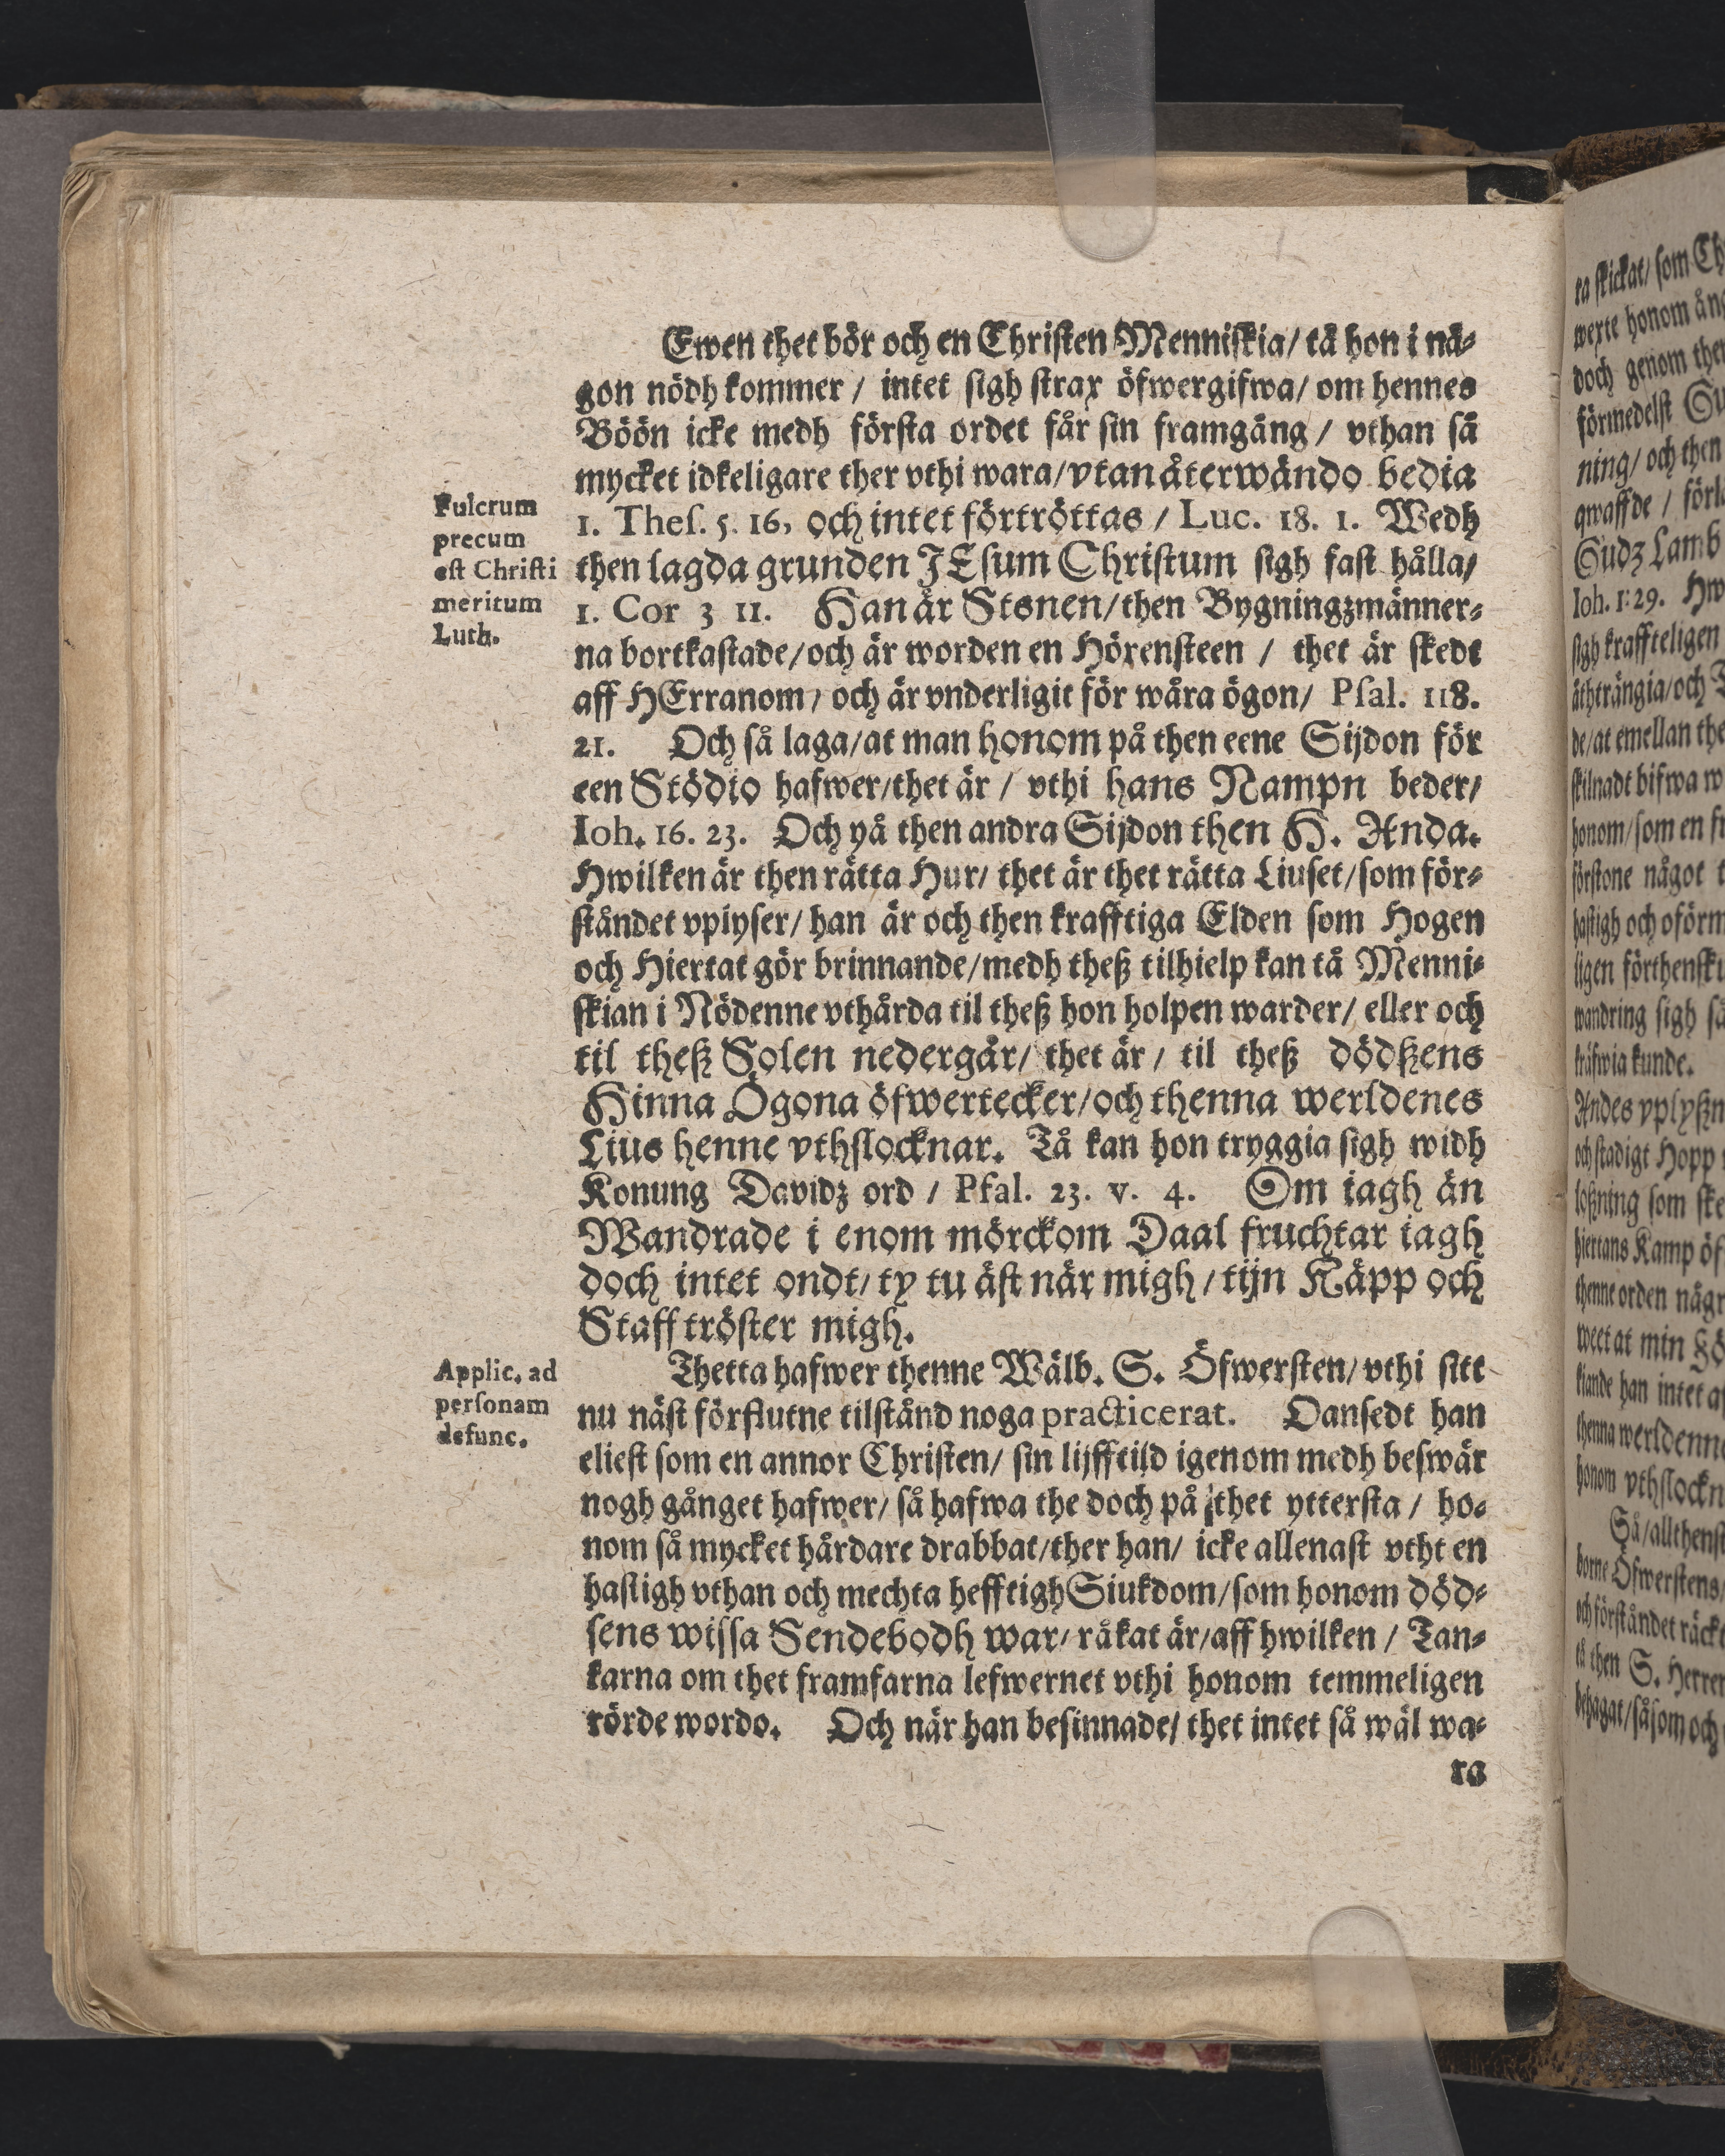 Ewen thet bör och en Christen Menniskia/ tå hon i nå⸗
gon nödh kommer / intet sigh strax öfwergifwa/ om hennes
Böön icke medh första ordet får sin framgång / vthan så
mycket idkeligare ther vthi wara/ vtan återwändo bedia
Fulcrum
precum
est Christi
meritum
Luth.
1. Thes. 5. 16, och intet förtröttas / Luc. 18. 1. Wedh
then lagda grunden JEsum Christum sigh fast hålla/
1. Cor 3 11. Han är Stenen/ then Bygningzmänner⸗
na bortkastade/ och är worden en Hörensteen / thet är skedt
aff HErranom/ och är vnderligit för wåra ögon/ Psal. 118.
21. Och så laga/ at man honom på then eene Sijdon för
een Stödio hafwer/ thet är / vthi hans Nampn beder/
Ioh. 16. 23. Och yå then andra Sijdon then H. Anda.
Hwilken är then rätta Hur/ thet är thet rätta Liuset/ som för⸗
ståndet vplyser/ han är och then krafftiga Elden som Hogen
och Hiertat gör brinnande/ medh theß tilhielp kan tå Menni⸗
skian i Nödenne vthårda til theß hon holpen warder/ eller och
til theß Solen nedergår/ thet är / til theß dödßens
Hinna Ögona öfwertecker/ och thenna werldenes
Lius henne vthslocknar. Tå kan hon tryggia sigh widh
Konung Davidz ord / Psal. 23. v. 4. Om iagh än
Wandrade i enom mörckom Daal fruchtar iagh
doch intet ondt/ ty tu äst när migh / tijn Käpp och
Staff tröster migh.
Applic. ad
personam
defunc.
Thetta hafwer thenne Wälb. S. Öfwersten/ vthi sitt
nu näst förflutne tilstånd noga practicerat. Oansedt han
eliest som en annor Christen/ sin lijfftild igenom medh beswär
nogh gånget hafwer/ så hafwa the doch på thet yttersta / ho⸗
nom så mycket hårdare drabbat/ ther han/ icke allenast vtht en
hastigh vthan och mechta hefftigh Siukdom/ som honom död⸗
sens wissa Sendebodh war/ råkat är/ aff hwilken / Tan⸗
karna om thet framfarna lefwernet vthi honom temmeligen
rörde wordo. Och när han besinnade/ thet intet så wäl wa⸗
ra